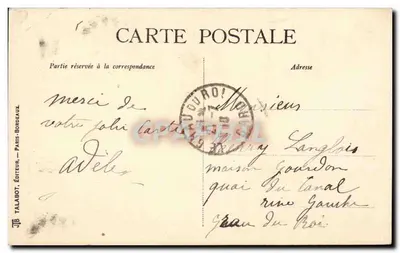 CARTE POSTALE
Partie réservée à la correspondance
Adresse
merci de
votre jolie carte
adèle
Monsieur
Langlois
maison Jourdon
quai du Canal
rive Gauche
Grau du Roi
GRAU DU ROI
TALABOT, ÉDITEUR. — PARIS-BORDEAUX.